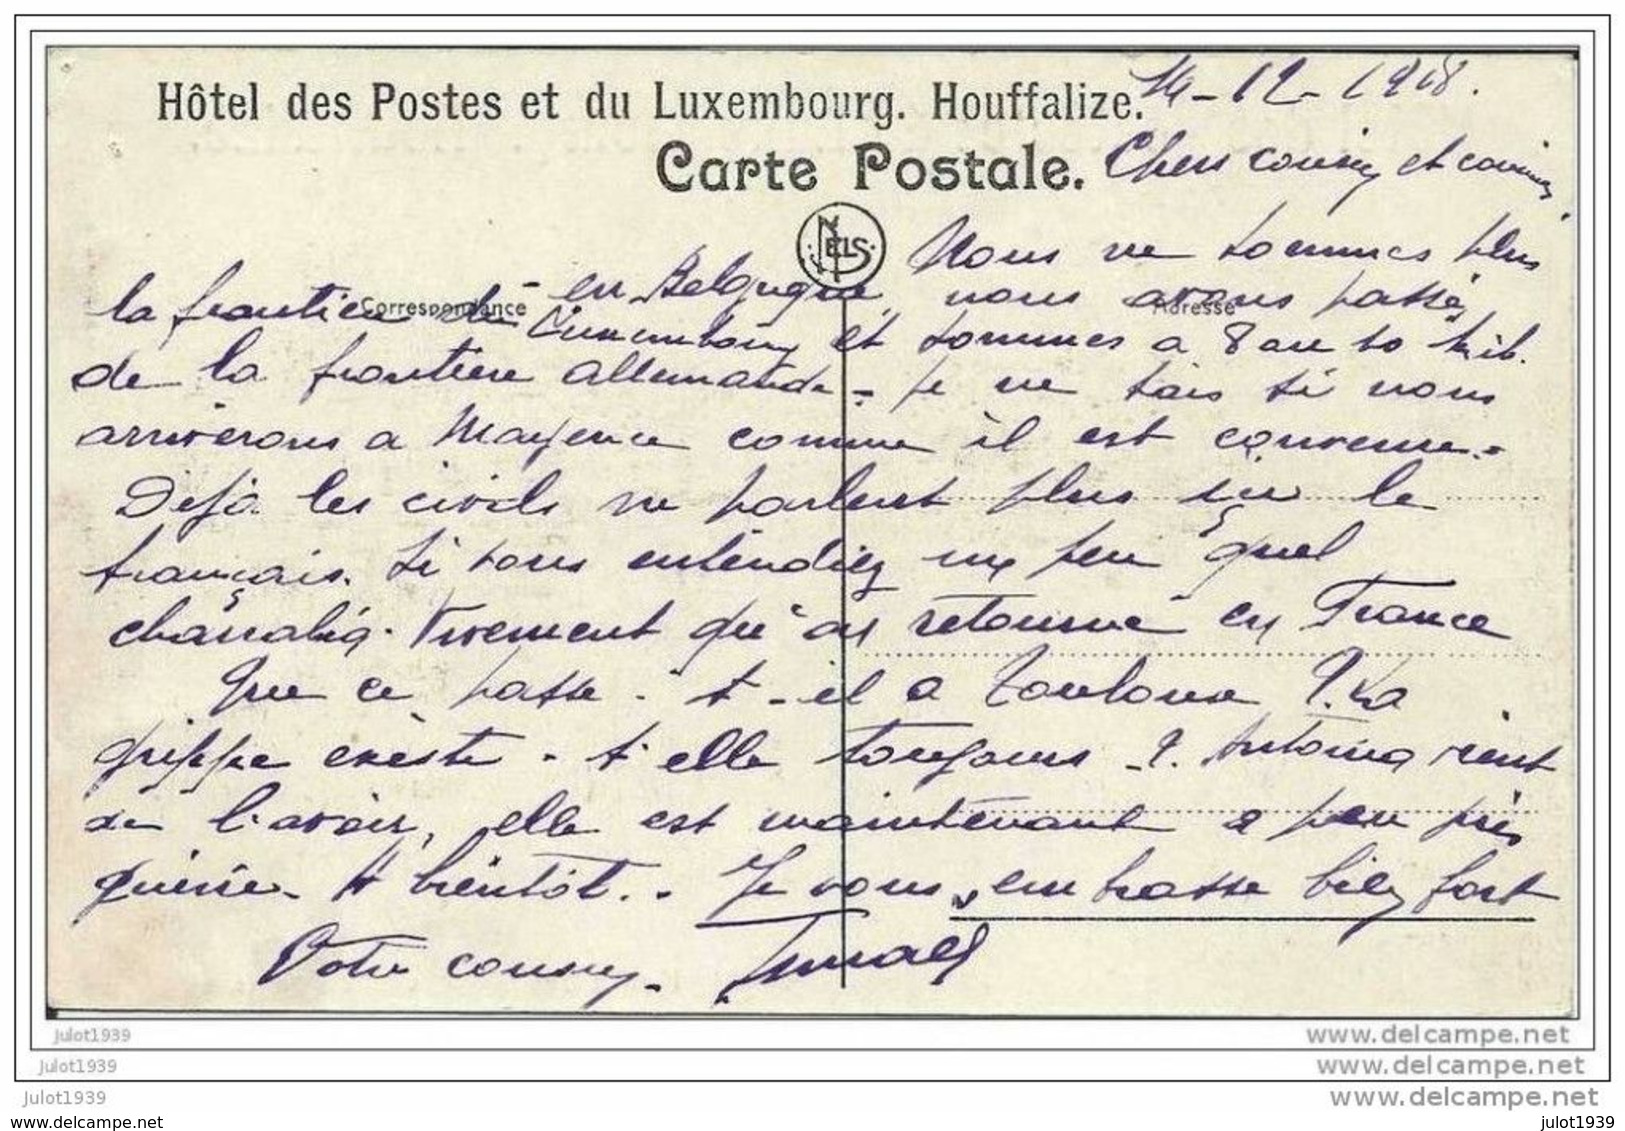 Hôtel des Postes et du Luxembourg. Houffalize.
14-12-1918.
Carte Postale.
Chers cousin et cousines,
NELS
Nous ne sommes plus
en Belgique, nous avons passé
Correspondance
Adresse
la frontière du Luxembourg et sommes a 8 ou 10 kil.
de la frontière allemande - Je ne sais si nous
arriverons a Mayence comme il est convenu -
Deja les civils ne parlent plus ici le
français. Si vous entendiez un peu quel
charabia. Vivement qu'on retourne en France
Que ce passe-t-il a Toulouse ? La
grippe existe-t-elle toujours - ? Antonia vient
de l'avoir, elle est maintenant a peu près
guérie - A bientôt - . Je vous embrasse bien fort
Votre cousin -
julot1939
www.delcampe.net
julot1939
www.delcampe.net
julot1939
www.delcampe.net
julot1939
julot1939